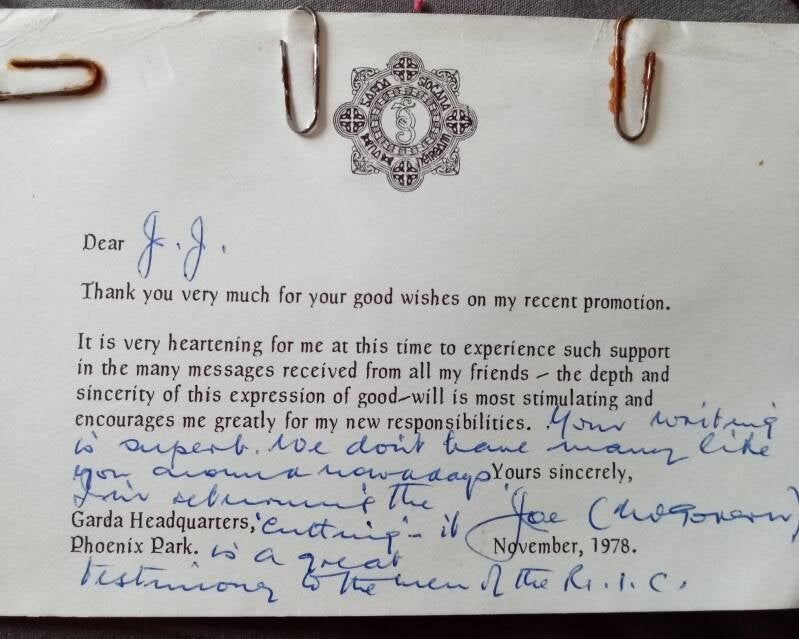 GARDA SIOCHANA
Dear J. J.
Thank you very much for your good wishes on my recent promotion.
It is very heartening for me at this time to experience such support
in the many messages received from all my friends – the depth and
sincerity of this expression of good-will is most stimulating and
encourages me greatly for my new responsibilities. Your writing
is superb. We don't have many like
you around nowadays
Yours sincerely,
I'm returning the
Garda Headquarters, "cutting" - it
Joe (McGovern)
Phoenix Park. is a great
November, 1978.
testimony to the men of the R.I.C.